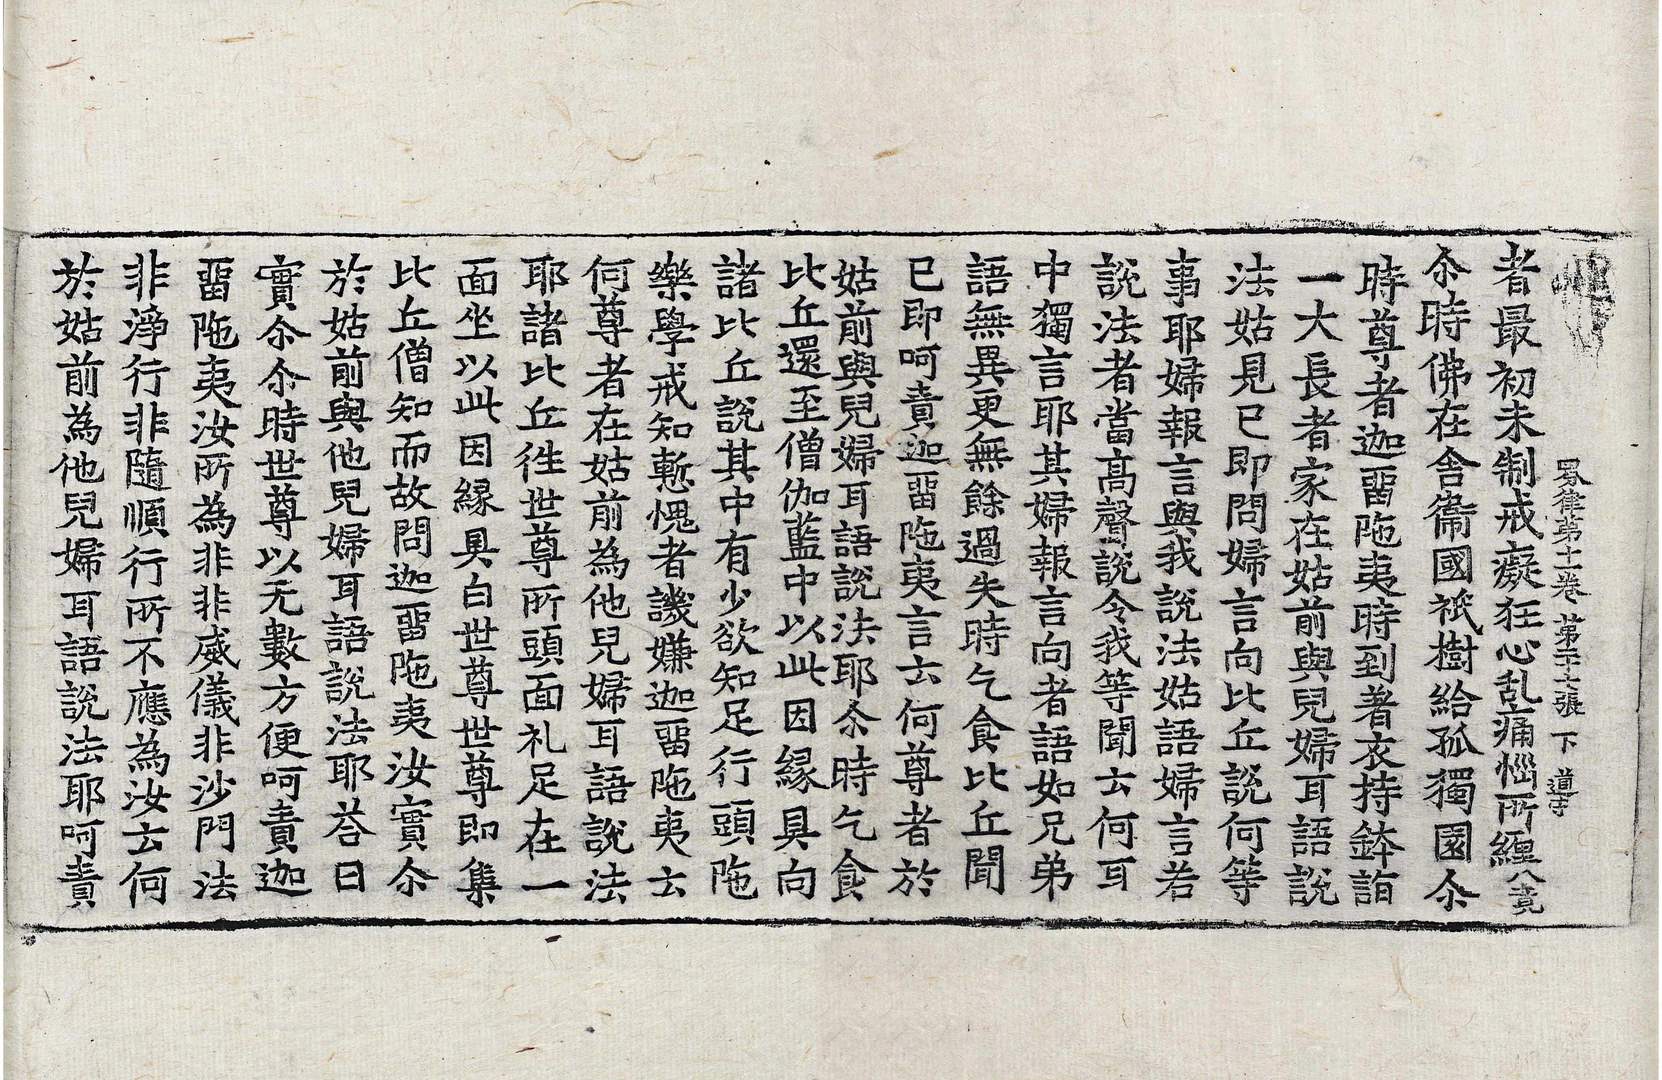 律第十一卷 第二十七張 下 道守
者最初未制戒癡狂心乱痛惱所纏八竟
尒時佛在舍衞國祇樹給孤獨園尒
時尊者迦畱陁夷時到著衣持鉢詣
一大長者家在姑前與兒婦耳語說
法姑見已即問婦言向比丘說何等
事耶婦報言與我說法姑語婦言若
說法者當高聲說令我等聞云何耳
中獨言耶其婦報言向者語如兄弟
語無異更無餘過失時乞食比丘聞
已即呵責迦畱陁夷言云何尊者於
姑前與兒婦耳語說法耶尒時乞食
比丘還至僧伽藍中以此因緣具向
諸比丘說其中有少欲知足行頭陁
樂學戒知慙愧者譏嫌迦畱陁夷云
何尊者在姑前為他兒婦耳語說法
耶諸比丘徃世尊所頭面礼足在一
面坐以此因緣具白世尊世尊即集
比丘僧知而故問迦畱陁夷汝實尒
於姑前與他兒婦耳語說法耶荅曰
實尒尒時世尊以无數方便呵責迦
畱陁夷汝所為非非威儀非沙門法
非淨行非隨順行所不應為汝云何
於姑前為他兒婦耳語說法耶呵責